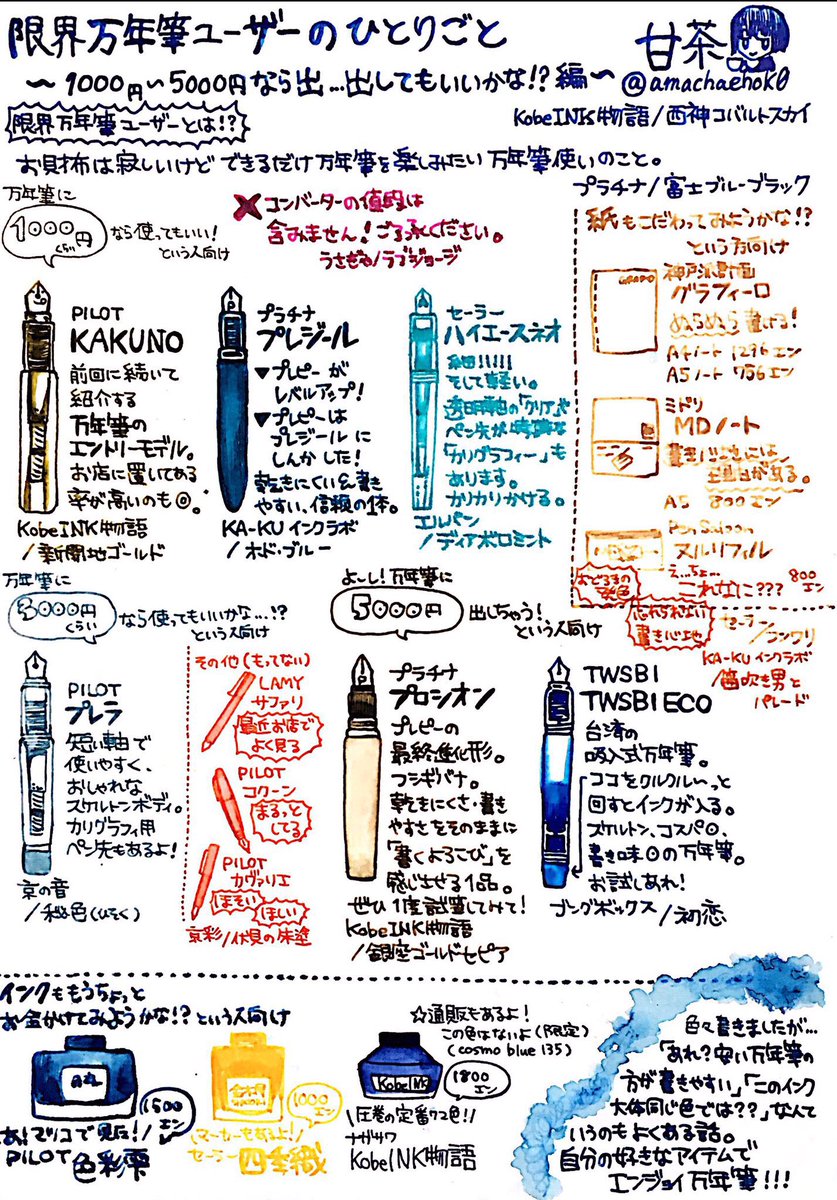 限界万年筆ユーザーのひとりごと
〜1000円〜5000円なら出…出してもいいかな!?編〜
甘茶
@amachaehok0
KobeINK物語/西神コバルトスカイ
限界万年筆ユーザーとは!?
お財布は寂しいけどできるだけ万年筆を楽しみたい万年筆使いのこと。
プラチナ/富士ブルーブラック
万年筆に
1000円
くらい
なら使ってもいい!
という人向け
×コンバーターの値段は
含みません!ご了承ください。
うさぎや/ラブジョージ
PILOT
KAKUNO
前回に続いて
紹介する
万年筆の
エントリーモデル。
お店に置いてある
率が高いのも◎。
KobeINK物語
/新開地ゴールド
プラチナ
プレジール
▼プレピーが
レベルアップ!
▼プレピーは
プレジールに
しんかした!
乾きにくい&書き
やすい、信頼の1本。
KA-KUインクラボ
/ホド・ブルー
セーラー
ハイエースネオ
細!!!!!
そして軽い。
透明軸の「クリア」や
ペン先が特殊な
「カリグラフィー」も
あります。
カリカリかける。
エルバン
/ディアボロミント
紙もこだわってみようかな!?
という方向け
GRAPHILO
神戸派計画
グラフィーロ
ぬらぬら書ける!
A4ノート 1296エン
A5ノート 756エン
ミドリ
MDノート
書き心地には
定評がある。
A5 800エン
Pen Saloon
ヌルリフィル
え…ちょ…
これなに???
800エン
おどろきの
発色
忘れられない
書き心地
セーラー
/シンワリ
KA-KUインクラボ
/笛吹き男と
パレード
万年筆に
3000円
くらい
なら使ってもいいかな…!?
という人向け
PILOT
プレラ
短い軸で
使いやすく、
おしゃれな
スケルトンボディ。
カリグラフィ用
ペン先もあるよ!
京の音
/秘色(ひそく)
その他(もってない)
LAMY
サファリ
最近お店で
よく見る
PILOT
コクーン
まるっと
してる
PILOT
カヴァリエ
ほそい
ほしい
京彩/伏見の朱塗
よ〜し!万年筆に
5000円
出しちゃう!
という人向け
プラチナ
プロシオン
プレピーの
最終進化形。
フシギバナ。
乾きにくさ・書き
やすさをそのままに
「書くよろこび」を
感じさせる1品。
ぜひ1度試筆してみて!
KobeINK物語
/銀座ゴールドセピア
TWSBI
TWSBI ECO
台湾の
吸入式万年筆。
ココをクルクル〜っと
回すとインクが入る。
スケルトン、コスパ◎、
書き味◎の万年筆。
お試しあれ!
ブングボックス/初恋
インクももうちょっと
お金かけてみようかな!?という人向け
月夜
1500エン
あ!マツコで見た!
PILOT 色彩雫
金木犀
1000エン
マーカーもあるよ!
セーラー 四季織
☆通販もあるよ!
この色はないよ(限定)
(cosmo blue 135)
KobeINK
1800エン
圧巻の定番72色!
ナガサワ
KobeINK物語
色々書きましたが…
「あれ?安い万年筆の
方が書きやすい」「このインク
大体同じ色では??」なんて
いうのもよくある話。
自分の好きなアイテムで
エンジョイ万年筆!!!